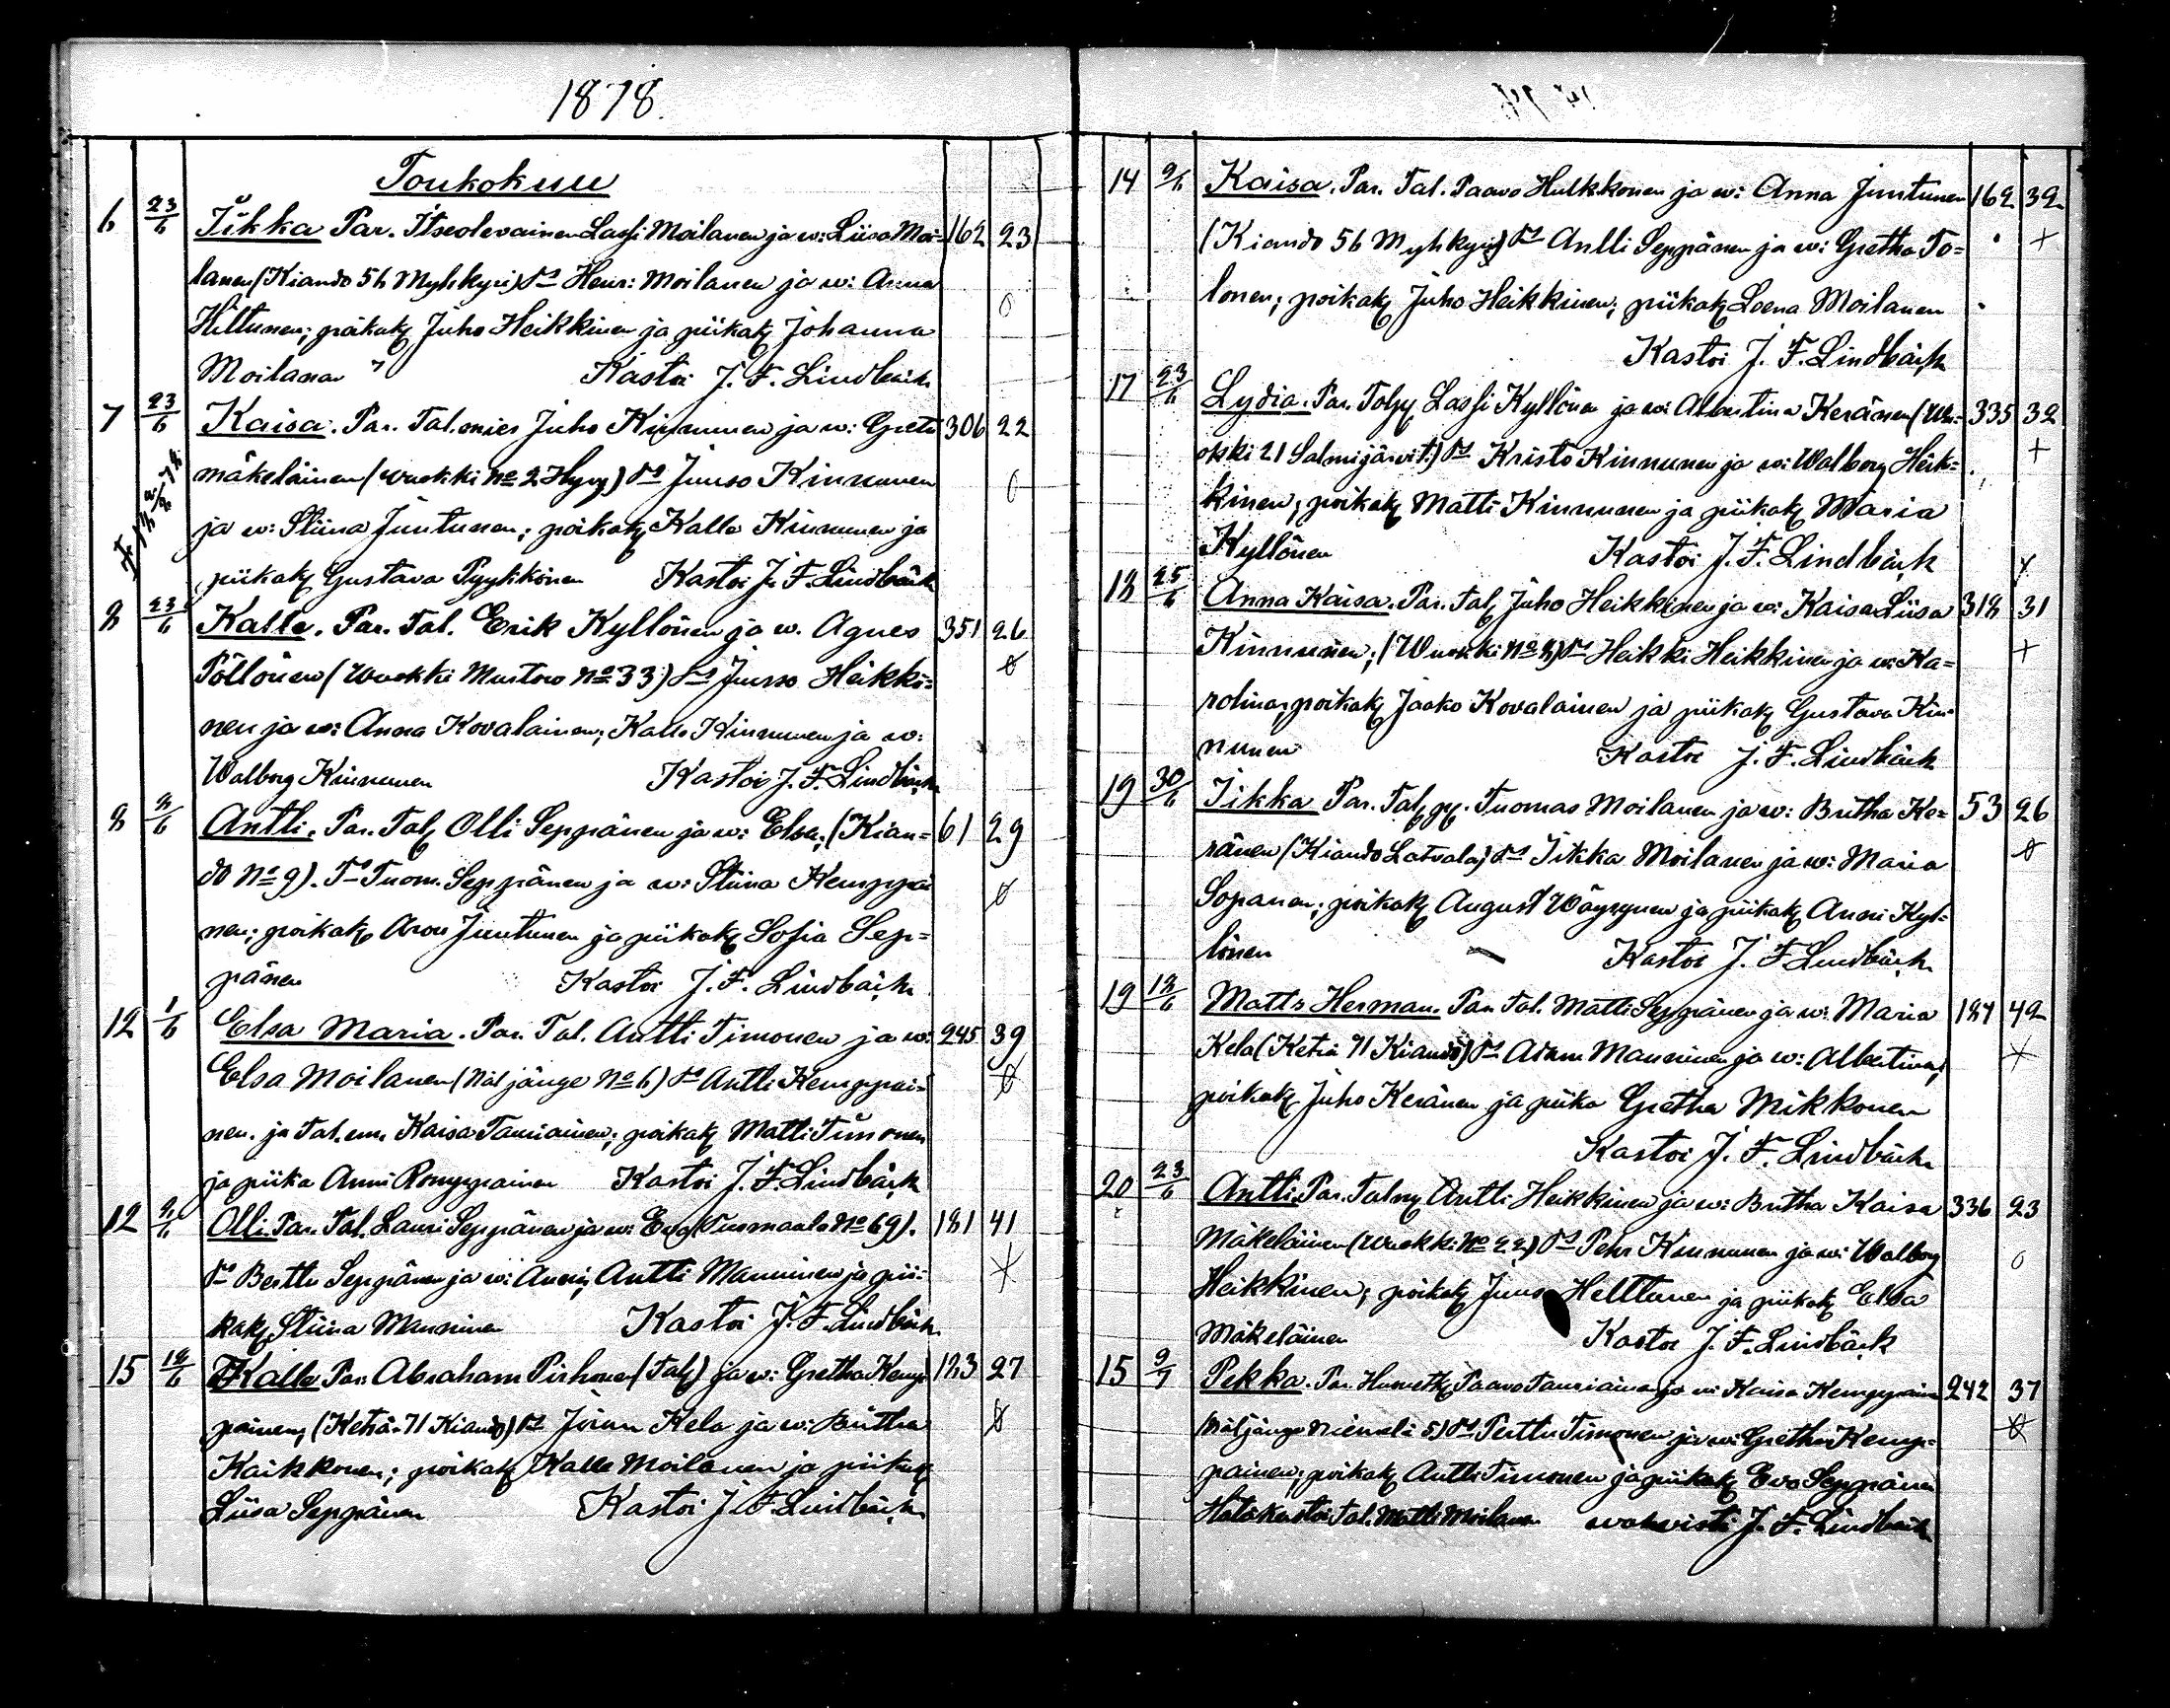 1878.
Toukokuu
6 23/6 Iikka Par. Itseolevainen Lassi Moilanen ja w: Liisa Moi- 162 23
lanen (Kiando 56 Myhkyri) Ts Henr: Moilanen ja w: Anna
Hiltunen; poikak Juho Heikkinen ja piikak Johanna
Moilanen Kastoi J. F. Lindbäck
7 23/6 Kaisa. Par. Tal.mies Juho Kinnunen ja w: Greta 306 22
Mäkeläinen (Wuokki No 2 Hyry) Ts Juuso Kinnunen
ja w: Stiina Juntunen; poikak Kalle Kinnunen ja
piikak Gustava Pyykkönen Kastoi J. F. Lindbäck
8 23/6 Kalle. Par. Tal. Erik Kyllönen ja w. Agnes 351 26
Pöllönen (Wuokki Mustow No 33) Ts Juuso Heikki-
nen ja w: Anna Kovalainen; Kalle Kinnunen ja w:
Walborg Kinnunen Kastoi J. F. Lindbäck
8 2/6 Antti. Par. Tal Olli Seppänen ja w: Elsa; (Kian- 61 29
do No 9). Ts Tuom. Seppänen ja w: Stiina Kemppai
nen; poikak Aron Juntunen ja piikak Sofia Sep-
pänen Kastoi J. F. Lindbäck
12 1/6 Elsa Maria. Par. Tal. Antti Timonen ja w: 245 39
Elsa Moilanen (Näljänge No 6) Ts Antti Kemppai-
nen. ja Tal.em. Kaisa Tauriainen; poikak Matti Timonen
ja piika Anni Romppainen Kastoi J. F. Lindbäck
12 2/6 Olli. Par. Tal. Lauri Seppänen ja w: Eva (No 69). 181 41
Ts Berttu Seppänen ja w: Anni; Antti Manninen ja pii-
kak Stiina Manninen Kastoi J. F. Lindbäck
15 12/6 Kalle Par. Abraham Pirhonen (Tal) ja w: Gretha Kemp 183 27
painen; (Keträ 71 Kiando) Ts Jöran Kela ja w: Britha
Kaikkonen; poikak Kalle Moilanen ja piikak
Liisa Seppänen Kastoi J. F. Lindbäck
14 9/6 Kaisa. Par. Tal. Paavo Hulkkonen ja w: Anna Juntunen 162 32
(Kiando 56 Myhkyri) Ts Antti Seppänen ja w: Gretha To-
lonen; poikak Juho Heikkinen; piikak Leena Moilanen
Kastoi J. F. Lindbäck
17 23/6 Lydia. Par. Lassi Kyllönen ja w: Albertina Keränen (Wu- 335 32
okki 21 Salmijärvi t.) Ts Kristo Kinnunen ja w: Walborg Heik-
kinen; poikak Matti Kinnunen ja piikak Maria
Kyllönen Kastoi J. F. Lindbäck
18 25/6 Anna Kaisa. Par. Tal Juho Heikkinen ja w: Kaisa Liisa 318 31
Kinnunen; (Wuokki No 8) Ts Heikki Heikkinen ja w: Ka-
rolina; poikak Jaako Kovalainen ja piikak Gustava Kin-
nunen Kastoi J. F. Lindbäck
19 30/6 Iikka Par. Tal. Tuomas Moilanen ja w: Britha Ke- 53 26
ränen (Kiando Latvala) Ts Iikka Moilanen ja w: Maria
Sopanen; poikak August Wäyrynen ja piikak Anni Kyl-
lönen Kastoi J. F. Lindbäck
19 12/6 Matts Herman. Par. Tal. Matti Seppänen ja w: Maria 184 42
Kela (Keträ 71 Kiando) Ts Adam Manninen ja w: Albertina;
poikak Juho Keränen ja piika Gretha Mikkonen
Kastoi J. F. Lindbäck
20 23/6 Antti. Par. Antti Heikkinen ja w: Britha Kaisa 336 23
Mäkeläinen (Wuokki No 22) Ts Pehr Kinnunen ja w: Walborg
Heikkinen; poikak Juuso Helttunen ja piikak Elsa
Mäkeläinen Kastoi J. F. Lindbäck
15 9/7 Pekka. Par. Paavo Tauriainen ja w: Kaisa Kemppainen 242 37
(Näljänge Niemelä 5) Ts Perttu Timonen ja w: Gretha Kemp-
painen; poikak Antti Timonen ja piikak Eva Seppänen
Hätäkastoi Tal. Matti Moilanen wahvisti J. F. Lindbäck